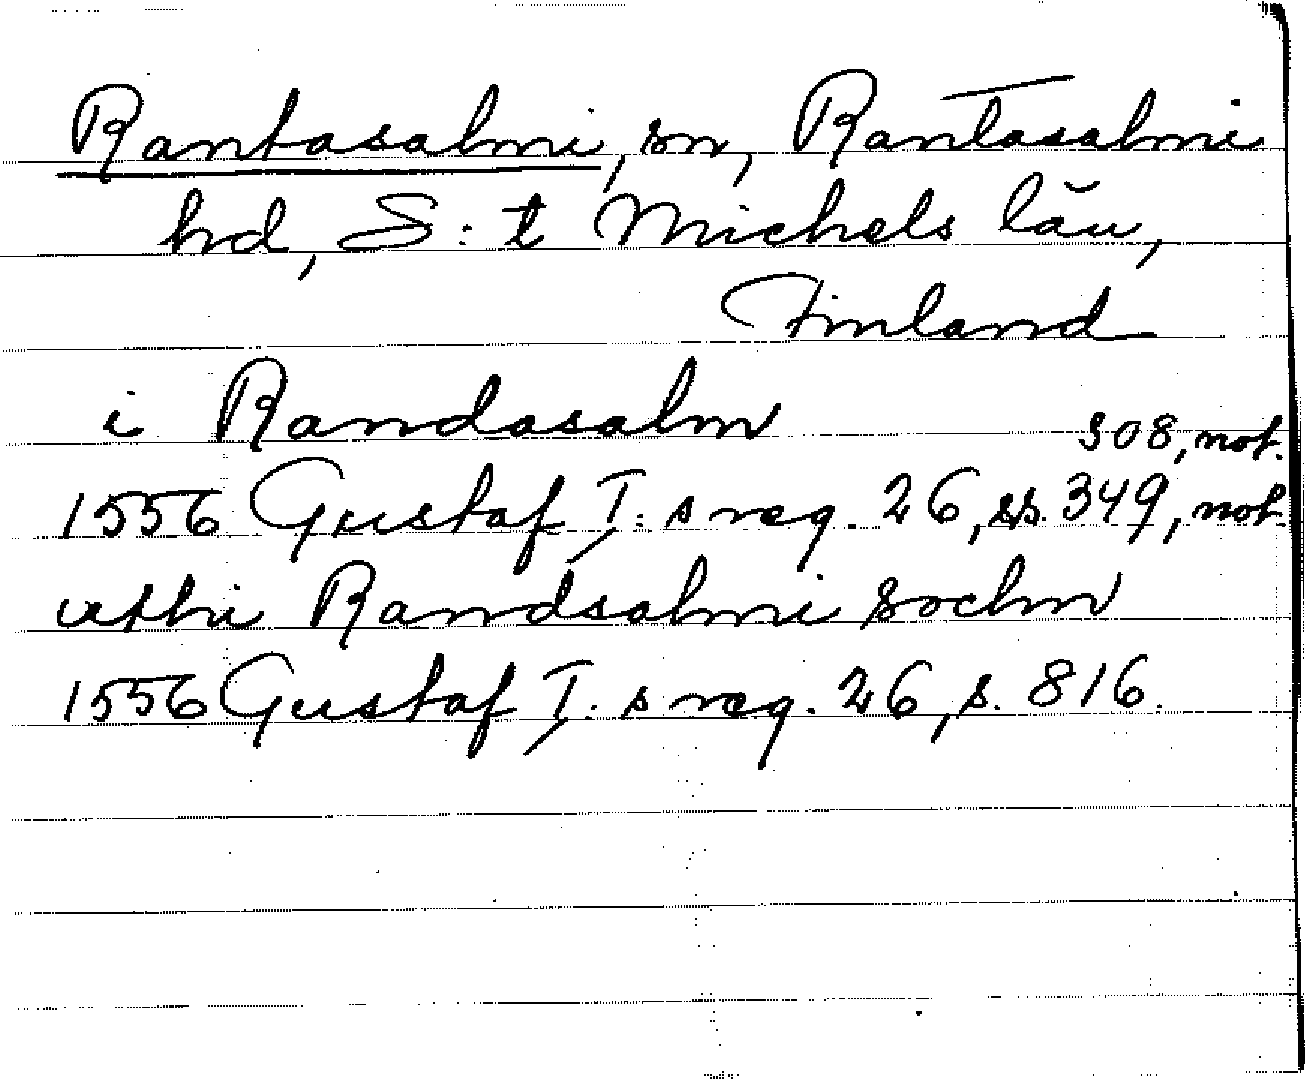 Rantasalmi, sn, Rantasalmi
hd, S:t Michels län,
Finland
i Randasalm
308, not.
1556 Gustaf I:s reg. 26, ss. 349, not.
uthi Randsalmi sochn
1556 Gustaf I:s reg. 26, s. 816.